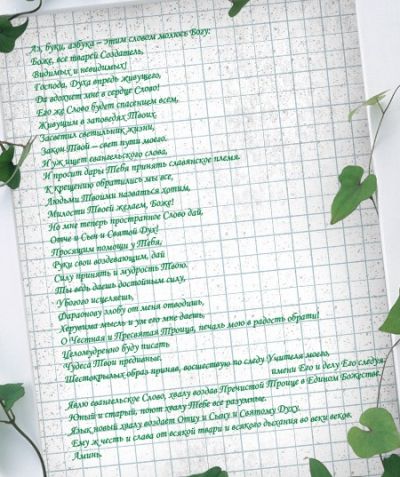 Аз, буки, азбука – этим словом молюсь Богу:
Боже, все тварей Создатель,
Видимых и невидимых!
Господа, Духа впредь живущего,
Да вдохнет мне в сердце Слово!
Его же Слово будет спасением всем,
Живущим в заповедях Твоих.
Засветил светильник жизни,
Закон Твой – свет пути моего.
И уж ищет евангельского слова,
И просит дары Тебя принять славянское племя.
К крещению обратились мы все,
Людьми Твоими назваться хотим,
Милости Твоей желаем, Боже!
Но мне теперь пространное Слово дай,
Отче и Сын и Святой Дух!
Просящим помощи у Тебя,
Руки свои воздевающим, дай
Силу принять и мудрость Твою.
Ты ведь даешь достойным силу,
Убогого исцеляешь,
Фараонову злобу от меня отводишь,
Херувима мысль и ум его мне даешь,
О Честная и Пресвятая Троица, печаль мою в радость обрати!
Целомудренно буду писать
Чудеса Твои предивные,
Шестокрылых образ приняв, восшествую по следу Учителя моего,
имени Его и делу Его следуя
Явлю евангельское Слово, хвалу воздав Пречистой Троице в Едином Божестве.
Юный и старый, поют хвалу Тебе все разумные.
Язык новый хвалу воздает Отцу и Сыну и Святому Духу.
Ему ж честь и слава от всякой твари и всякого дыхания во веки веков.
Аминь.